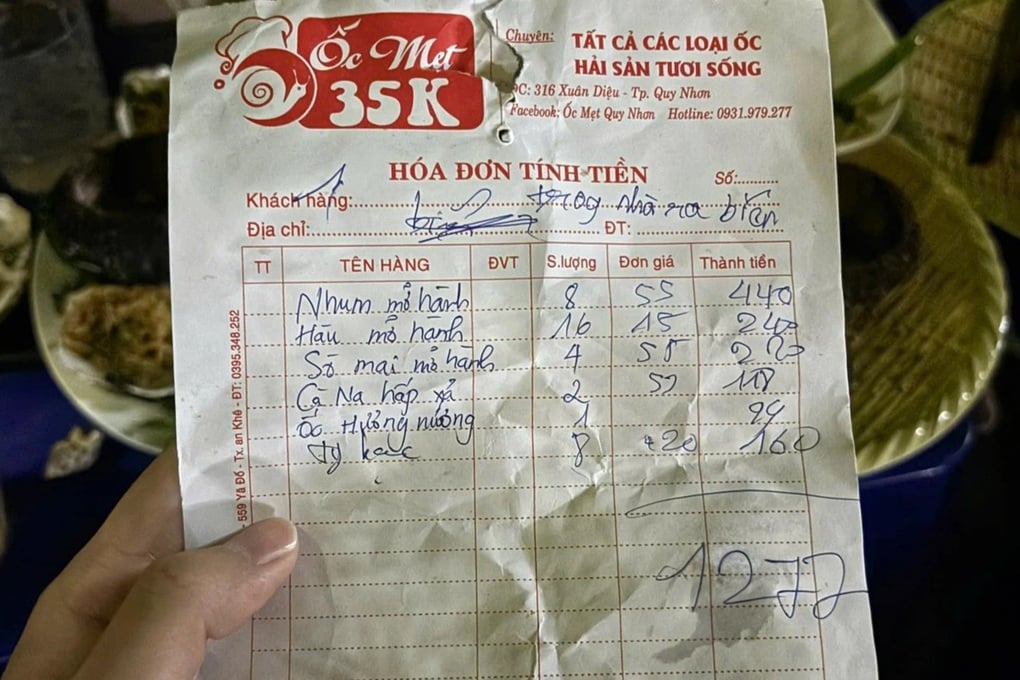 Ốc Mẹt
35K
Chuyên: TẤT CẢ CÁC LOẠI ỐC
HẢI SẢN TƯƠI SỐNG
ĐC: 316 Xuân Diệu - Tp. Quy Nhơn
Facebook: Ốc Mẹt Quy Nhơn Hotline: 0931.979.277
HÓA ĐƠN TÍNH TIỀN
Số:
Khách hàng: nhà ra biển
Địa chỉ: ĐT:
TT TÊN HÀNG ĐVT S.lượng Đơn giá Thành tiền
Nhum mỡ hành 8 55 440
Hàu mỡ hành 16 15 240
Sò mai mỡ hành 4 55 220
Cà Na hấp xả 2 59 118
Ốc Hương nướng 1 99
8 20 160
1277
- 559 Yã Đố - Tx. an Khê - ĐT: 0395.348.252